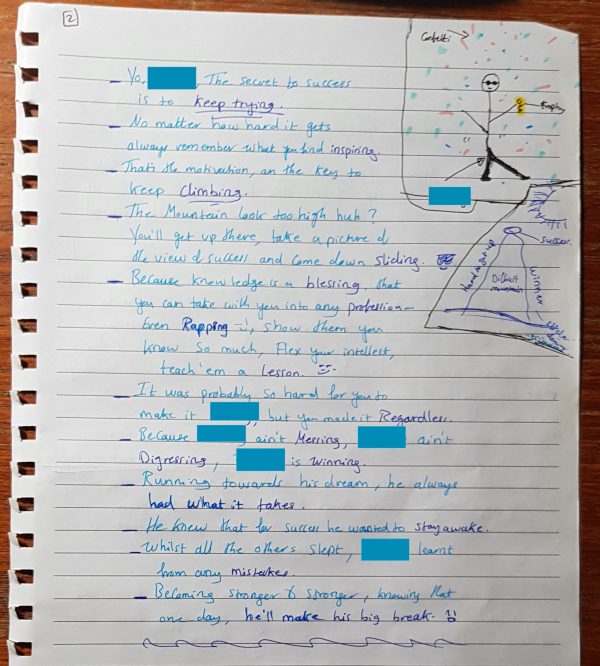 2
Confetti
Yo, The secret to success
is to keep trying.
No matter how hard it gets
always remember what you find inspiring.
That's the motivation, an the key to
keep climbing.
The Mountain look too high huh?
You'll get up there, take a picture of
the view of success and come down sliding.
Because knowledge is a blessing, that
you can take with you into any profession—
Even Rapping, show them you
know so much, Flex your intellest,
teach 'em a Lesson.
It was probably so hard for you to
make it, but you made it Regardless.
Because ain't Messing, ain't
Digressing, is winning.
Running towards his dream, he always
had what it takes.
He knew that for success he wanted to stay awake.
Whilst all the others slept, learnt
from any mistakes.
Becoming stronger & stronger, knowing that
one day, he'll make his big break.
success.
Difficult
mountain
winner